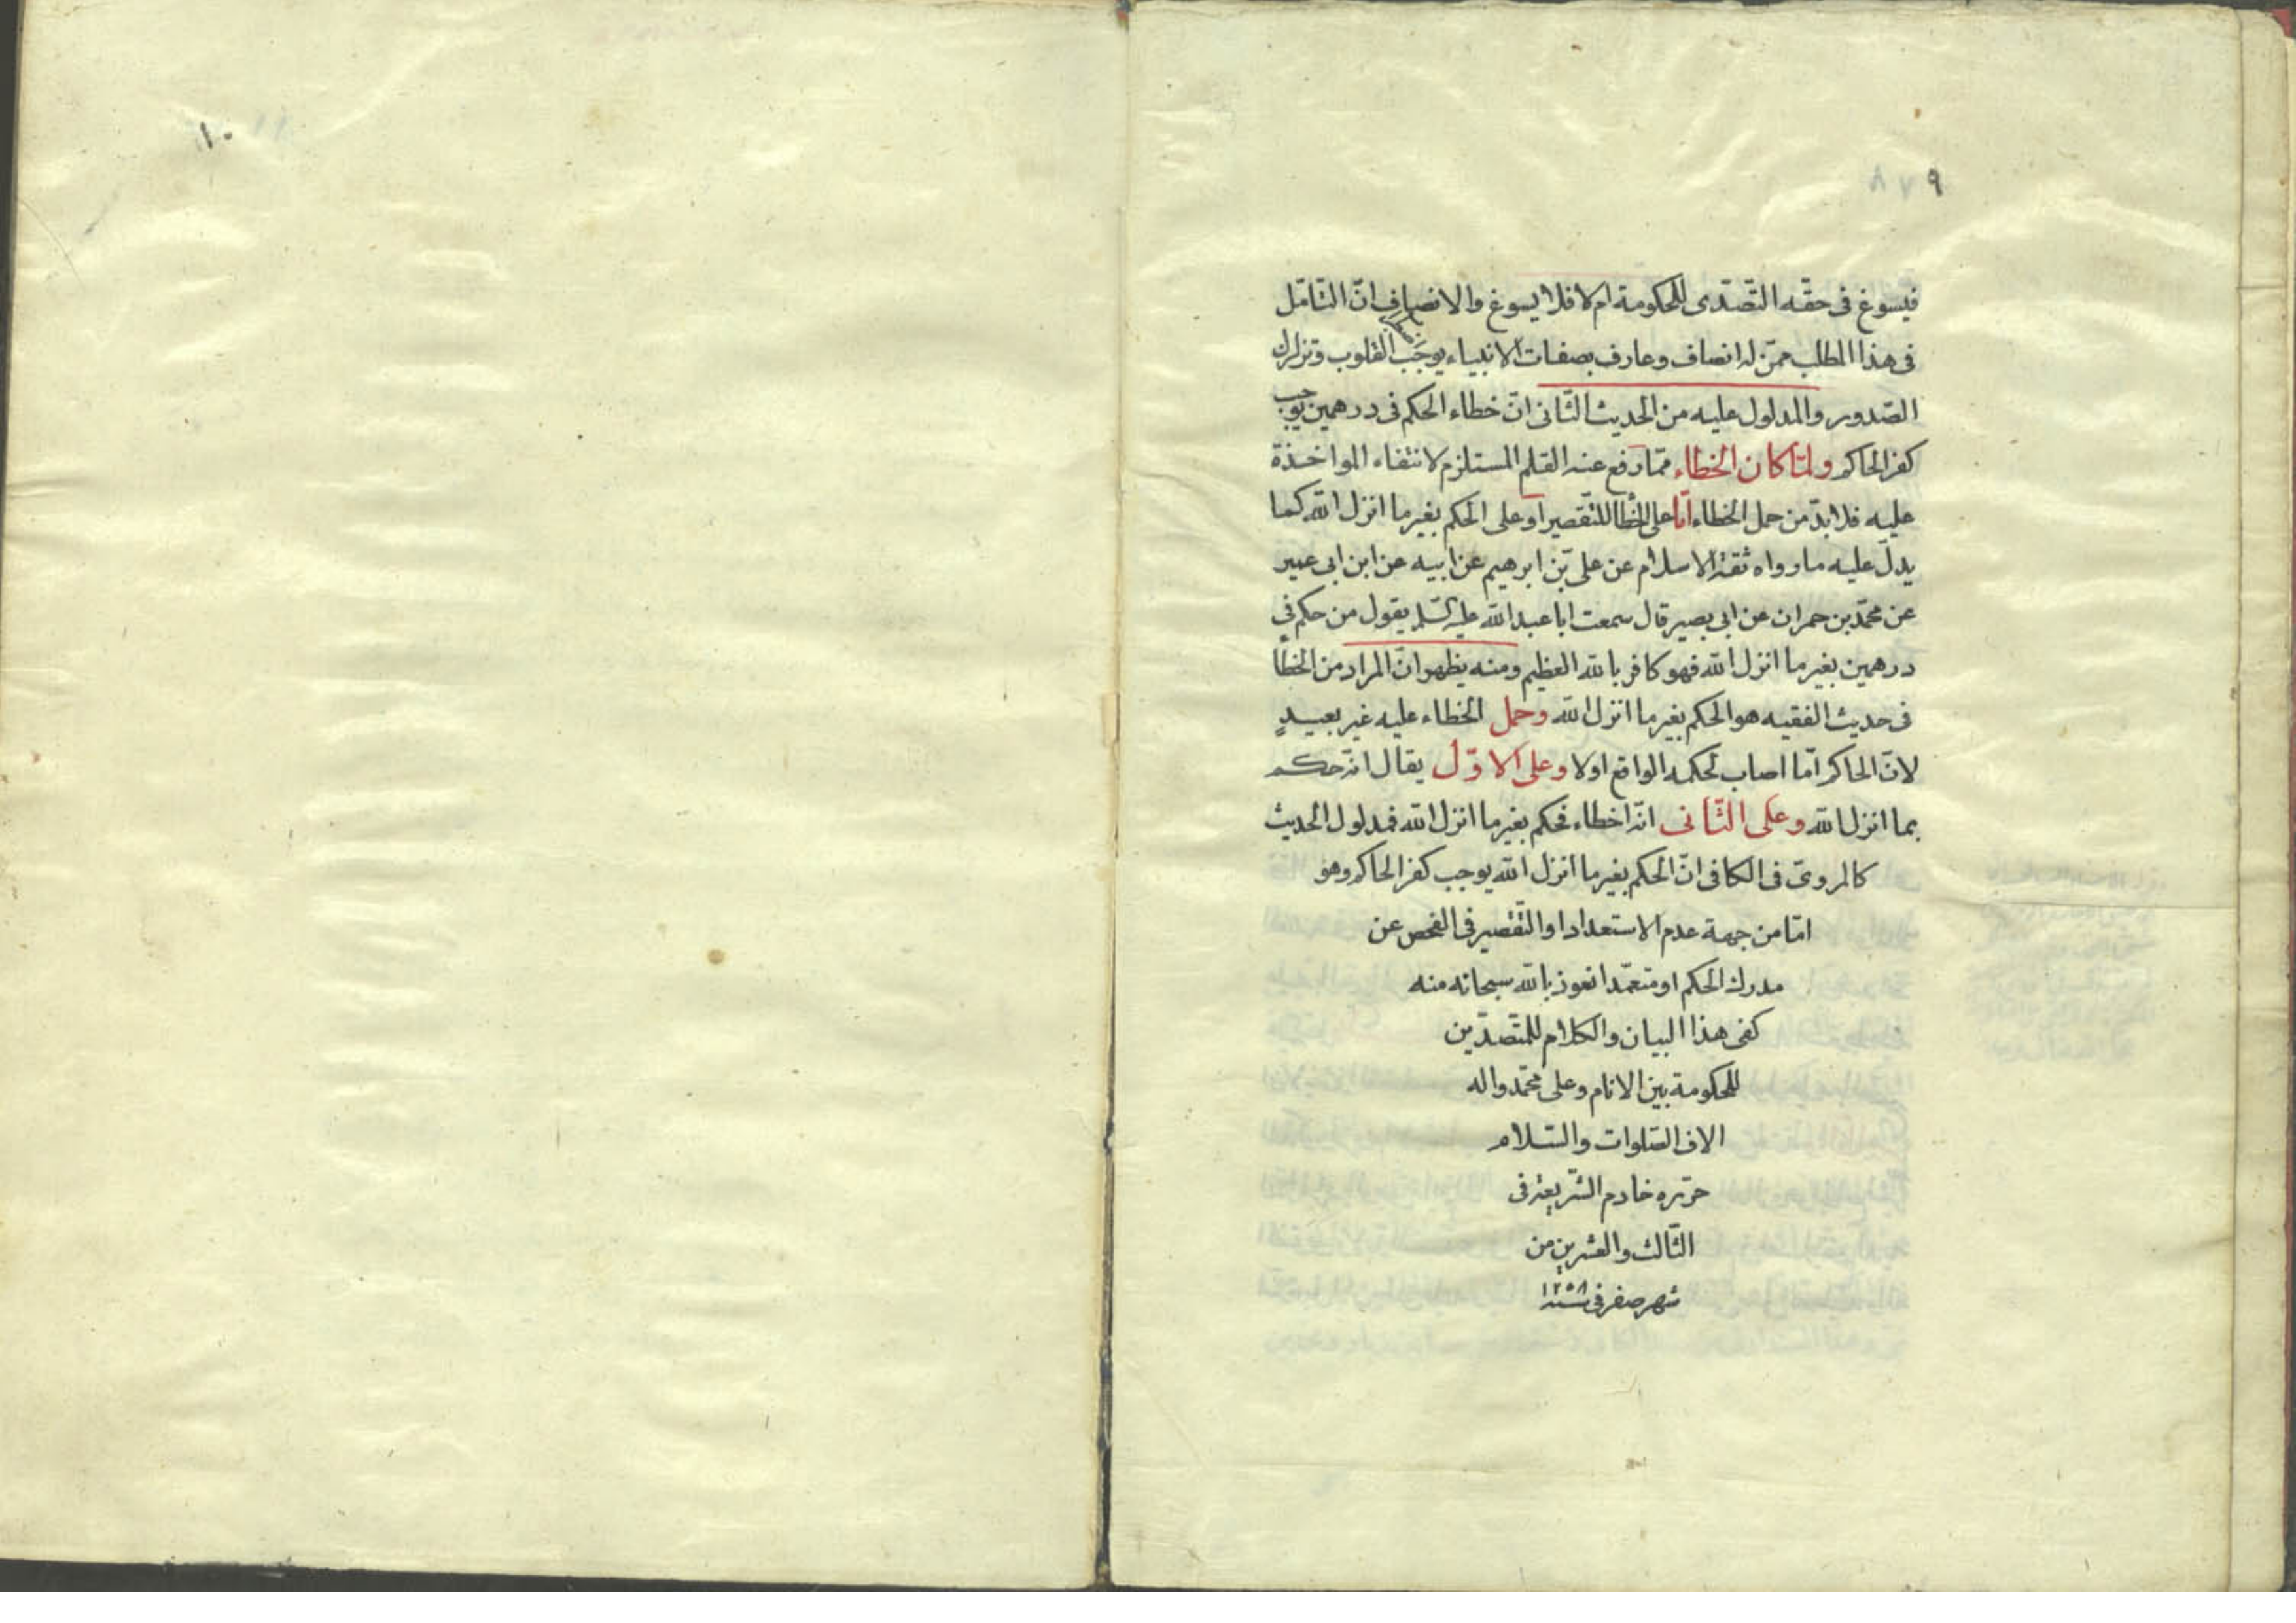 ٩ ٧ ٨
فيسوغ فى حقّه التّصّدى للحكومة ام لا فلا يسوغ والانصاف انّ التّامّل
فى هذا المطلب ممّن له انصاف وعارف بصفات الانبياء يوجب القلوب وتزلزل
الصّدور والمدلول عليه من الحديث الثّانى انّ خطاء الحكم فى درهمين يوجب
كفر الحاكم ولمّا كان الخطاء ممّا رفع عنه القلم المستلزم لانتفاء المواخذة
عليه فلا بدّ من حمل الخطاء امّا على الخطأ للتّقصير او على الحكم بغير ما انزل الله كما
يدلّ عليه ما رواه ثقة الاسلام عن على بن ابرهيم عن ابيه عن ابن ابى عمير
عن محمّد بن حمران عن ابى بصير قال سمعت ابا عبد الله عليه السّلم يقول من حكم فى
درهمين بغير ما انزل الله فهو كافر بالله العظيم ومنه يظهر انّ المراد من الخطأ
فى حديث الفقيه هو الحكم بغير ما انزل الله وحمل الخطاء عليه غير بعيدٍ
لانّ الحاكم امّا اصاب لحكمه الواقع او لا وعلى الاوّل يقال انّه حكم
بما انزل الله وعلى الثّانى انّه اخطاء فحكم بغير ما انزل الله فمدلول الحديث
كالمروىّ فى الكافى انّ الحكم بغير ما انزل الله يوجب كفر الحاكم وهو
امّا من جهة عدم الاستعداد او التّقصير فى الفحص عن
مدرك الحكم او متعمّدا نعوذ بالله سبحانه منه
كفى هذا البيان والكلام للمتّصدّين
للحكومة بين الانام وعلى محمّد واله
الاف الصّلوات والسّلام
حرّره خادم الشّريعة فى
الثّالث والعشرين من
شهر صفر فى سنة ١٢٥٨
١٠ ١١